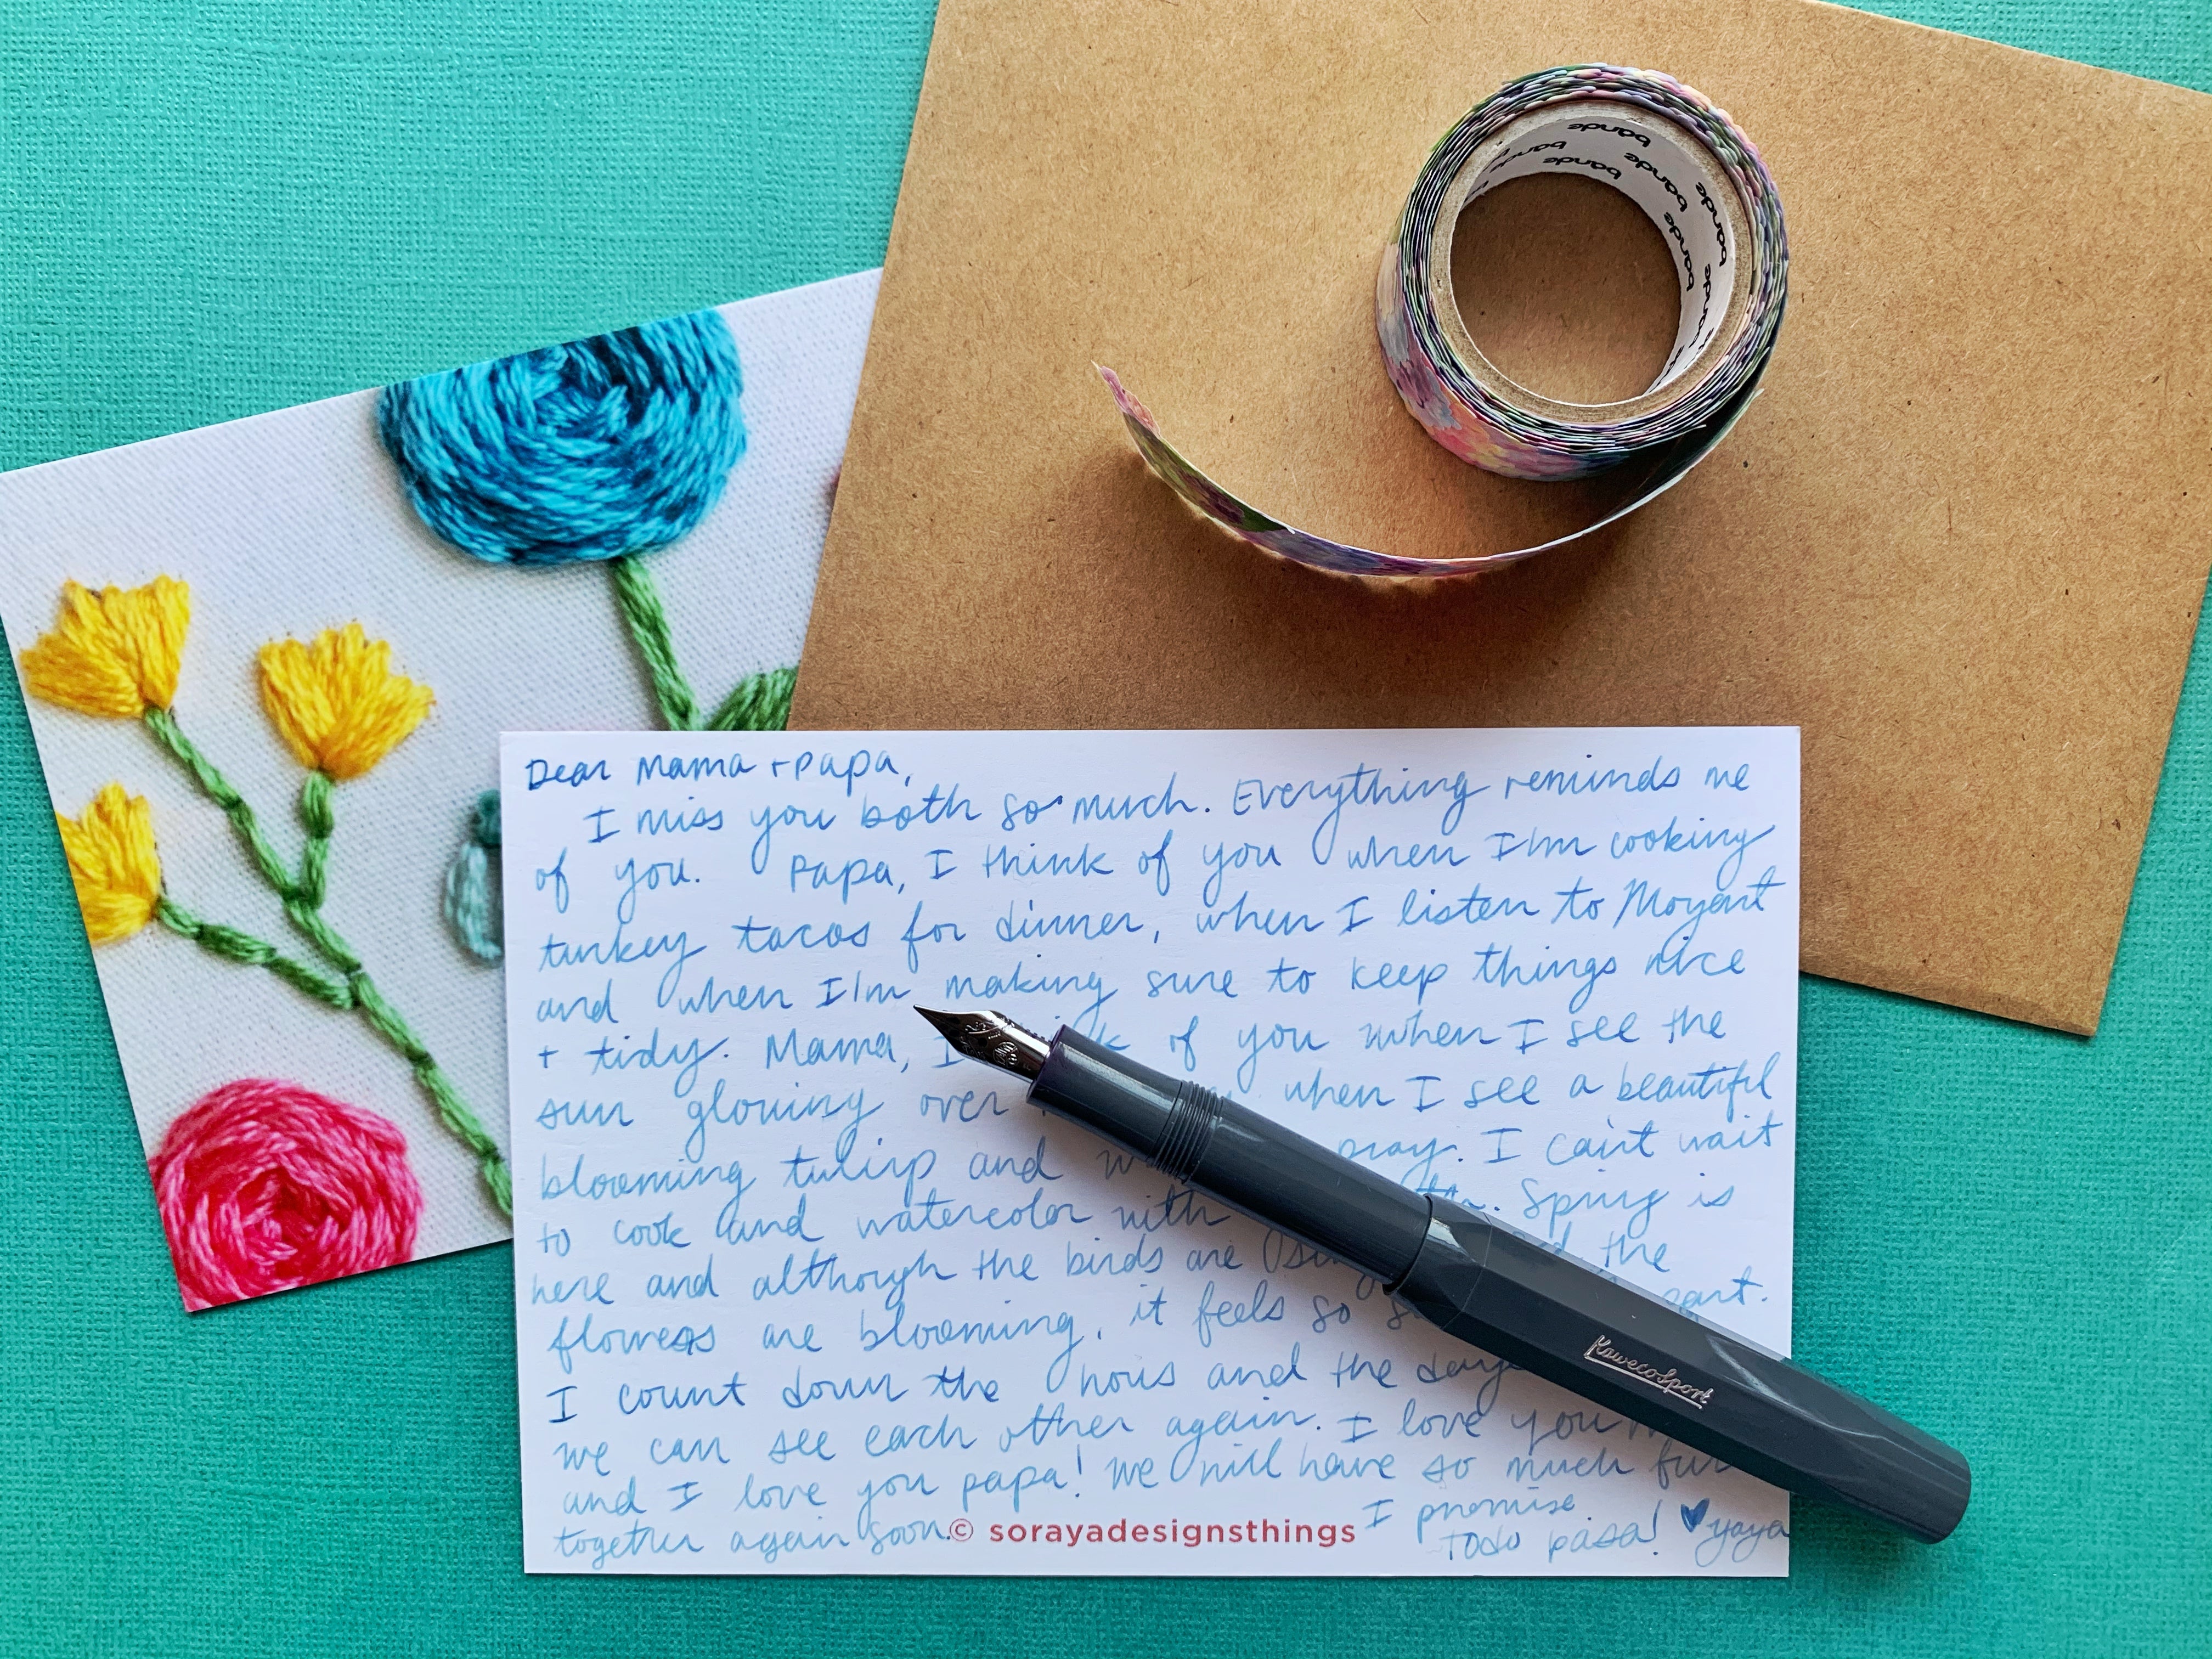 bande bande bande bande bande bande bande bande
Dear Mama + Papa,
I miss you both so much. Everything reminds me
of you. Papa, I think of you when I'm cooking
turkey tacos for dinner, when I listen to Mozart
and when I'm making sure to keep things nice
+ tidy. Mama, I of you when I see the
sun glowing over when I see a beautiful
blooming tulip and pray. I can't wait
to cook and watercolor with Spring is
here and although the birds are the
flowers are blooming, it feels so
I count down the hours and the days
we can see each other again. I love you
and I love you papa! We will have so much fun
together again soon. I promise
Todo pasa! ♥ yaya
© sorayadesignsthings
KawecoSport